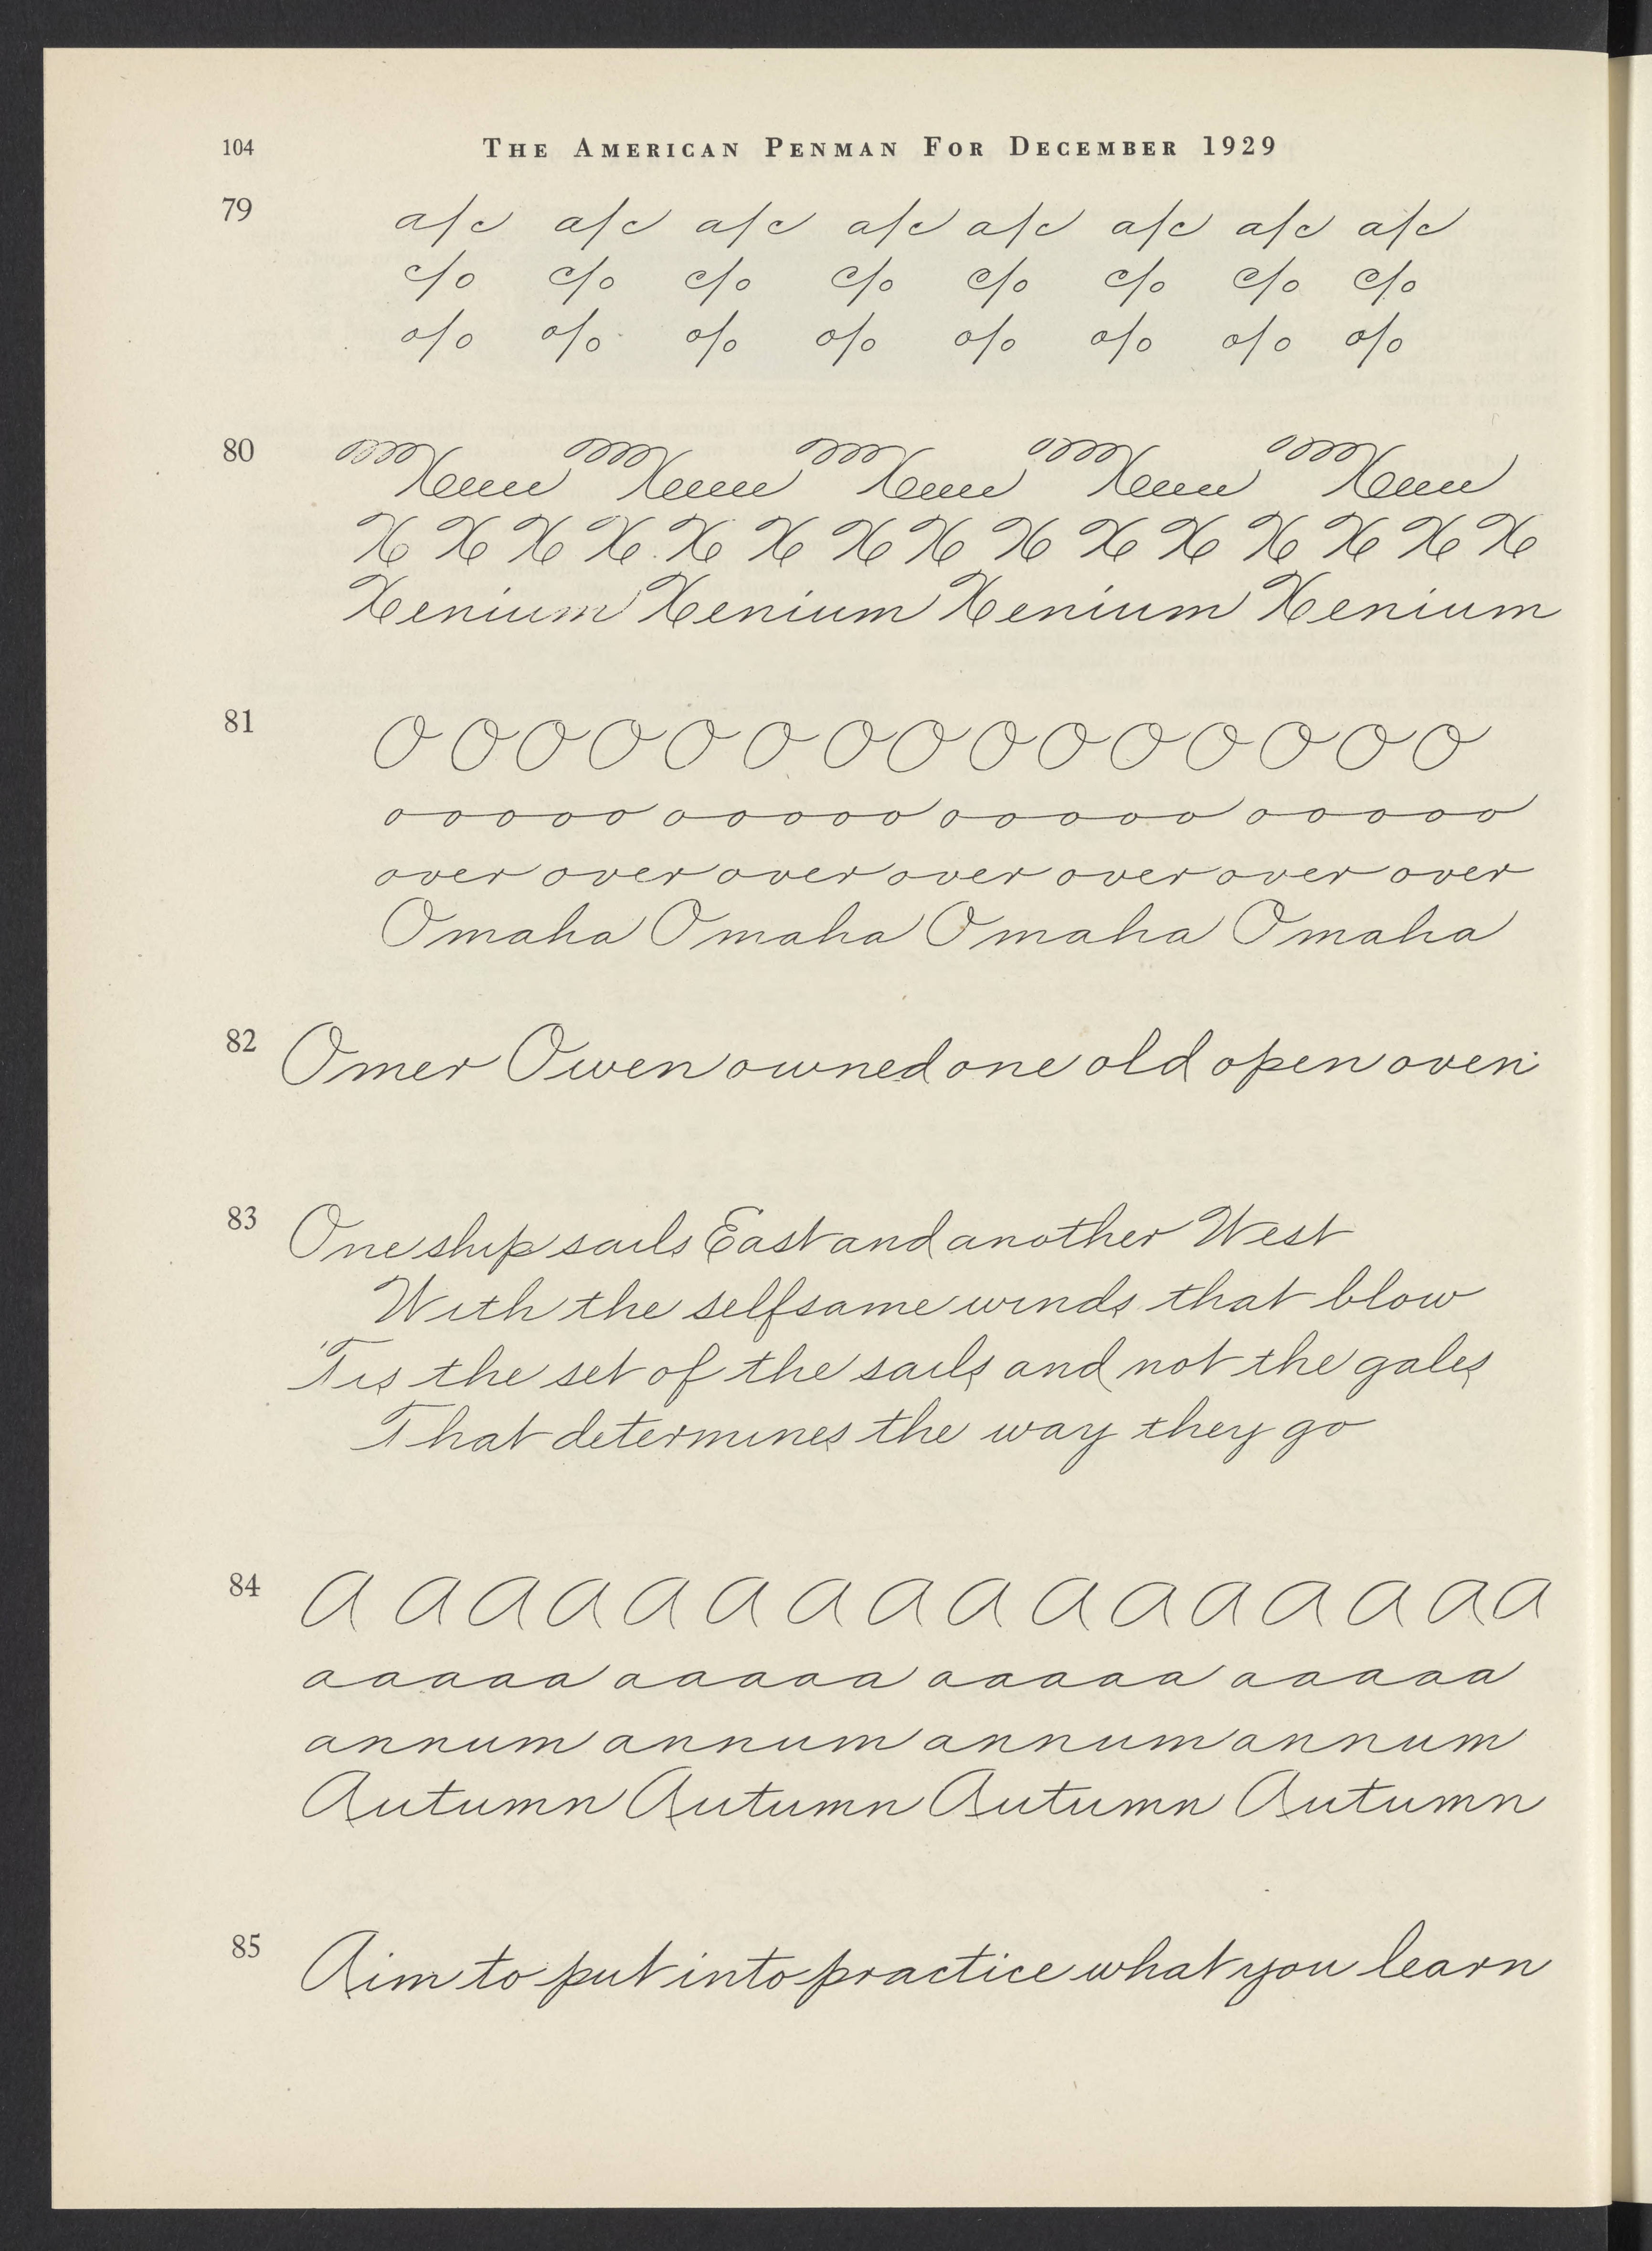 104
THE AMERICAN PENMAN FOR DECEMBER 1929
79
a/c a/c a/c a/c a/c a/c a/c a/c
c/o c/o c/o c/o c/o c/o c/o c/o
o/o o/o o/o o/o o/o o/o o/o o/o
80
X X X X X X X X X X X X X X X
Xenium Xenium Xenium Xenium
81
O O O O O O O O O O O O O O O
ooooo ooooo ooooo ooooo
over over over over over over over
Omaha Omaha Omaha Omaha
82
Omer Owen owned one old open oven.
83
One ship sails East and another West
With the selfsame winds that blow
'Tis the set of the sails and not the gales
That determines the way they go
84
A A A A A A A A A A A A A A A A
aaaaa aaaaa aaaaa aaaaa
annum annum annum annum
Autumn Autumn Autumn Autumn
85
Aim to put into practice what you learn